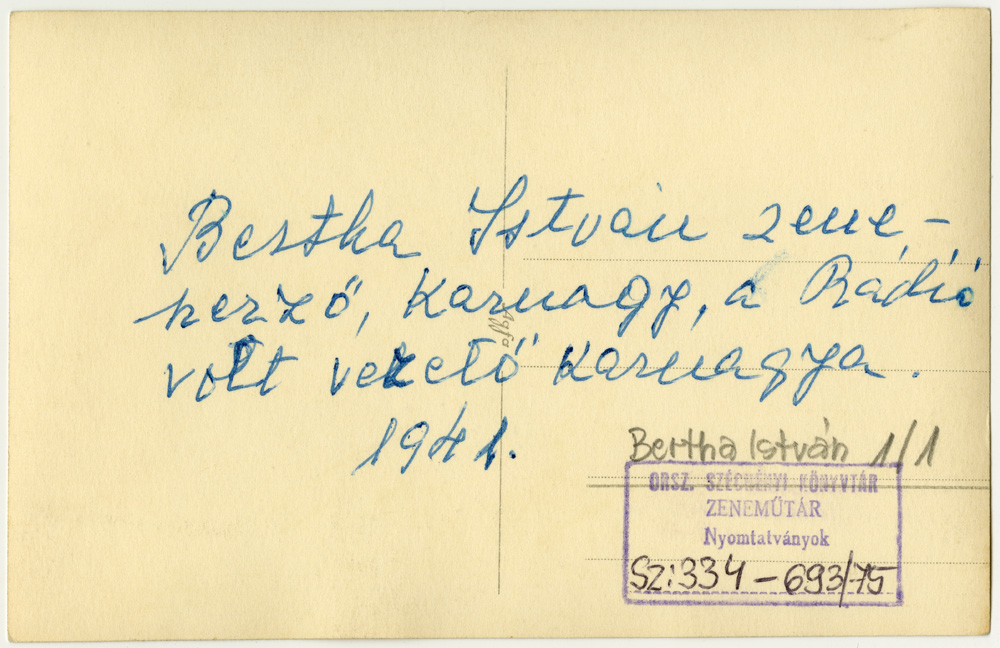 Bertha István zene-
szerző, karnagy, a Rádió
volt vezető karnagya.
1941.
Agfa
Bertha István 1/1
ORSZ. SZÉCHÉNYI KÖNYVTÁR
ZENEMŰTÁR
Nyomtatványok
SZ:334-693/75